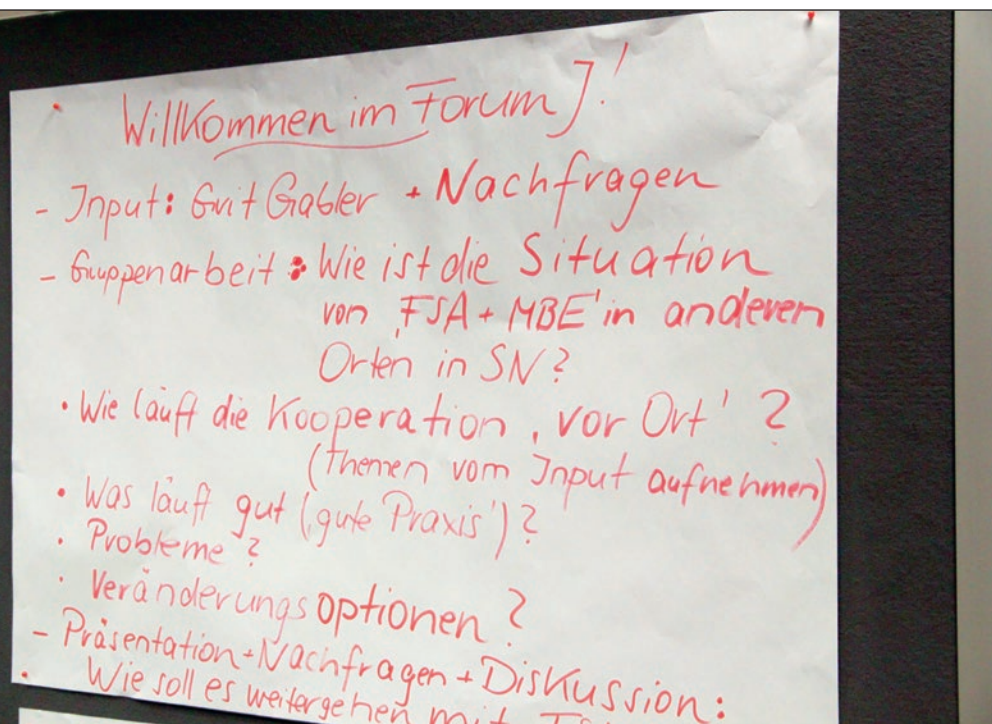 Willkommen im Forum I!
- Input: Grit Gabler + Nachfragen
- Gruppenarbeit: Wie ist die Situation
von ‚FSA + MBE' in anderen
Orten in SN?
• Wie läuft die Kooperation ‚vor Ort' ?
(Themen vom Input aufnehmen)
• Was läuft gut (‚gute Praxis')?
• Probleme ?
• Veränderungsoptionen ?
- Präsentation + Nachfragen + Diskussion:
• Wie soll es weitergehen mit